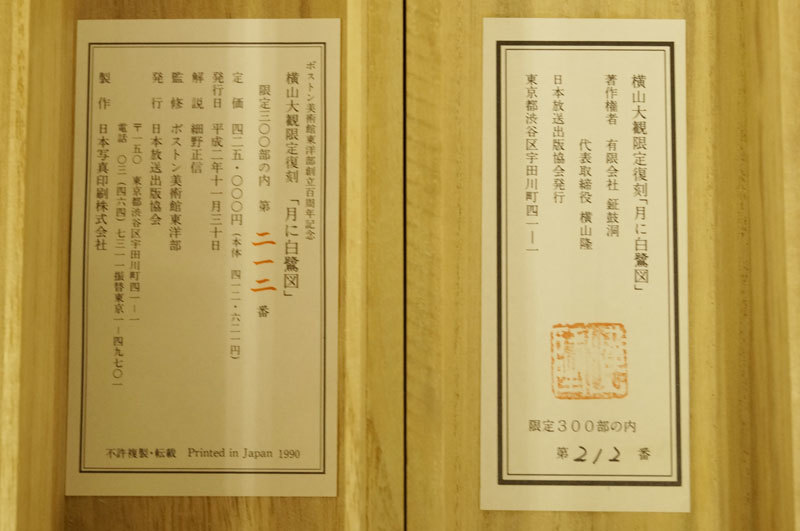 ボストン美術館東洋部創立百周年記念
横山大観限定復刻「月に白鷺図」
限定三〇〇部の内 第 二一二 番
定価 四二五・〇〇〇円(本体 四一二・六二一円)
発行日 平成二年十一月三十日
解説 細野正信
監修 ボストン美術館東洋部
発行 日本放送出版協会
〒一五〇 東京都渋谷区宇田川町四一ー一
電話 〇三(四六四)七三一一 振替東京一ー四九七〇一
製作 日本写真印刷株式会社
不許複製・転載 Printed in Japan 1990
横山大観限定復刻「月に白鷺図」
著作権者 有限会社 鉦鼓洞
代表取締役 横山隆
日本放送出版協会発行
東京都渋谷区宇田川町四一ー一
限定300部の内
第 212 番